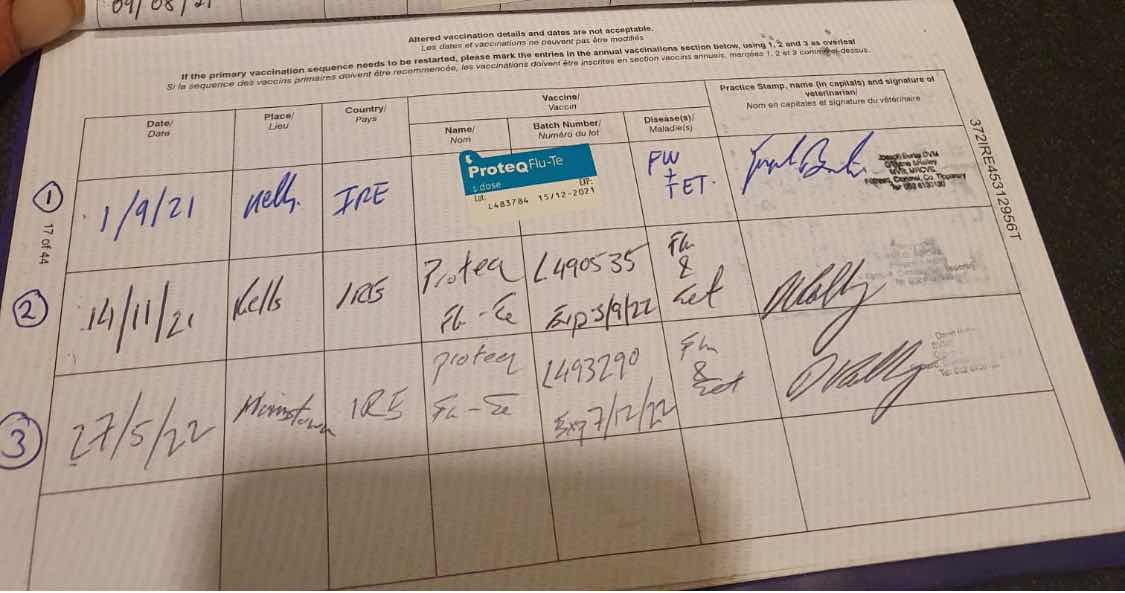 09/08/21
Altered vaccination details and dates are not acceptable.
Les dates et vaccinations ne peuvent pas être modifiés
If the primary vaccination sequence needs to be restarted, please mark the entries in the annual vaccinations section below, using 1, 2 and 3 as overleaf
Si la séquence des vaccins primaires doivent être recommencée, les vaccinations doivent être inscrites en section vaccins annuels, marquées 1, 2 et 3 comme ci-dessus.
Date/
Date
Place/
Lieu
Country/
Pays
Vaccine/
Vaccin
Name/
Nom
Batch Number/
Numéro du lot
Disease(s)/
Maladie(s)
Practice Stamp, name (in capitals) and signature of
veterinarian/
Nom en capitales et signature du vétérinaire
1
1/9/21
Kells.
IRE
ProteqFlu-Te
1 dose
Lot:
EXP:
L483784 15/12-2021
+
TET.
DVM
Co. Tipperary
2
14/11/21
Kells
IRE
Proteq
Flu-Te
L490535
Exp 5/9/22
Flu
&
Tet
3
27/5/22
IRE
Proteq
Flu-Te
L493290
Exp 7/12/22
Flu
&
Tet
17 of 44
372IRE45312956T